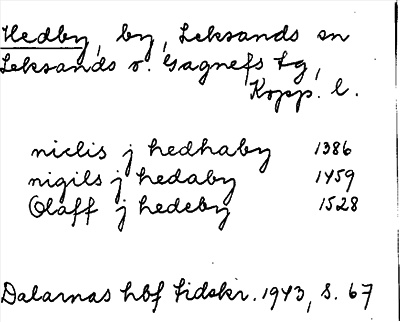 Hedby, by, Leksands sn
Leksands o. Gagnefs tg,
Kopp. l.
niclis j hedhaby 1386
nigils j hedaby 1459
Olaff j hedeby 1528
Dalarnas hbf tidskr. 1943, s. 67